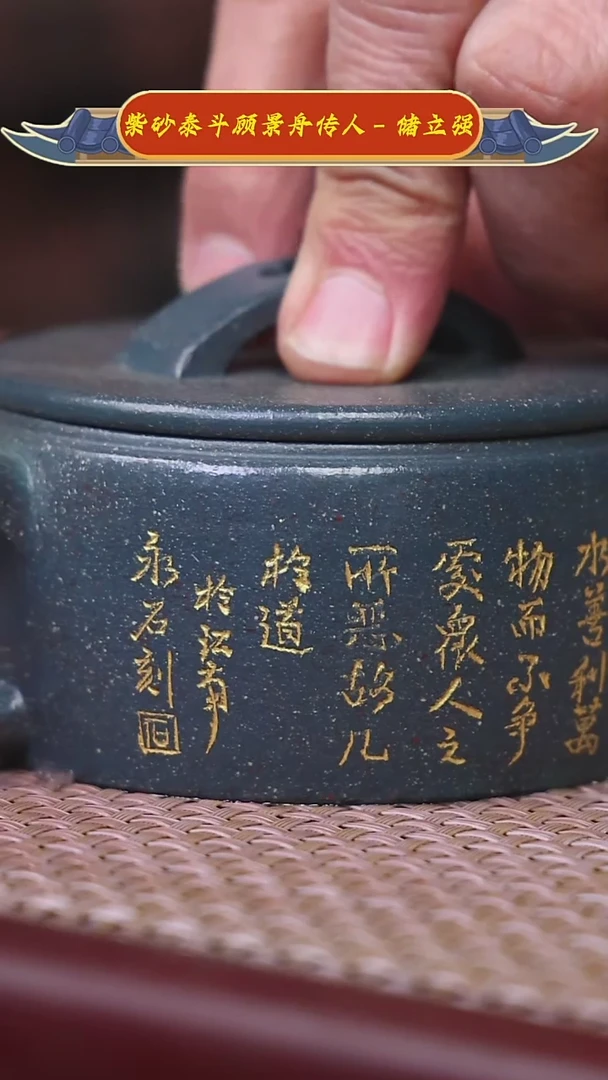 紫砂泰斗顾景舟传人 - 储立强
水善利萬
物而不争
處衆人之
所恶故几
於道
於江南
永石刻